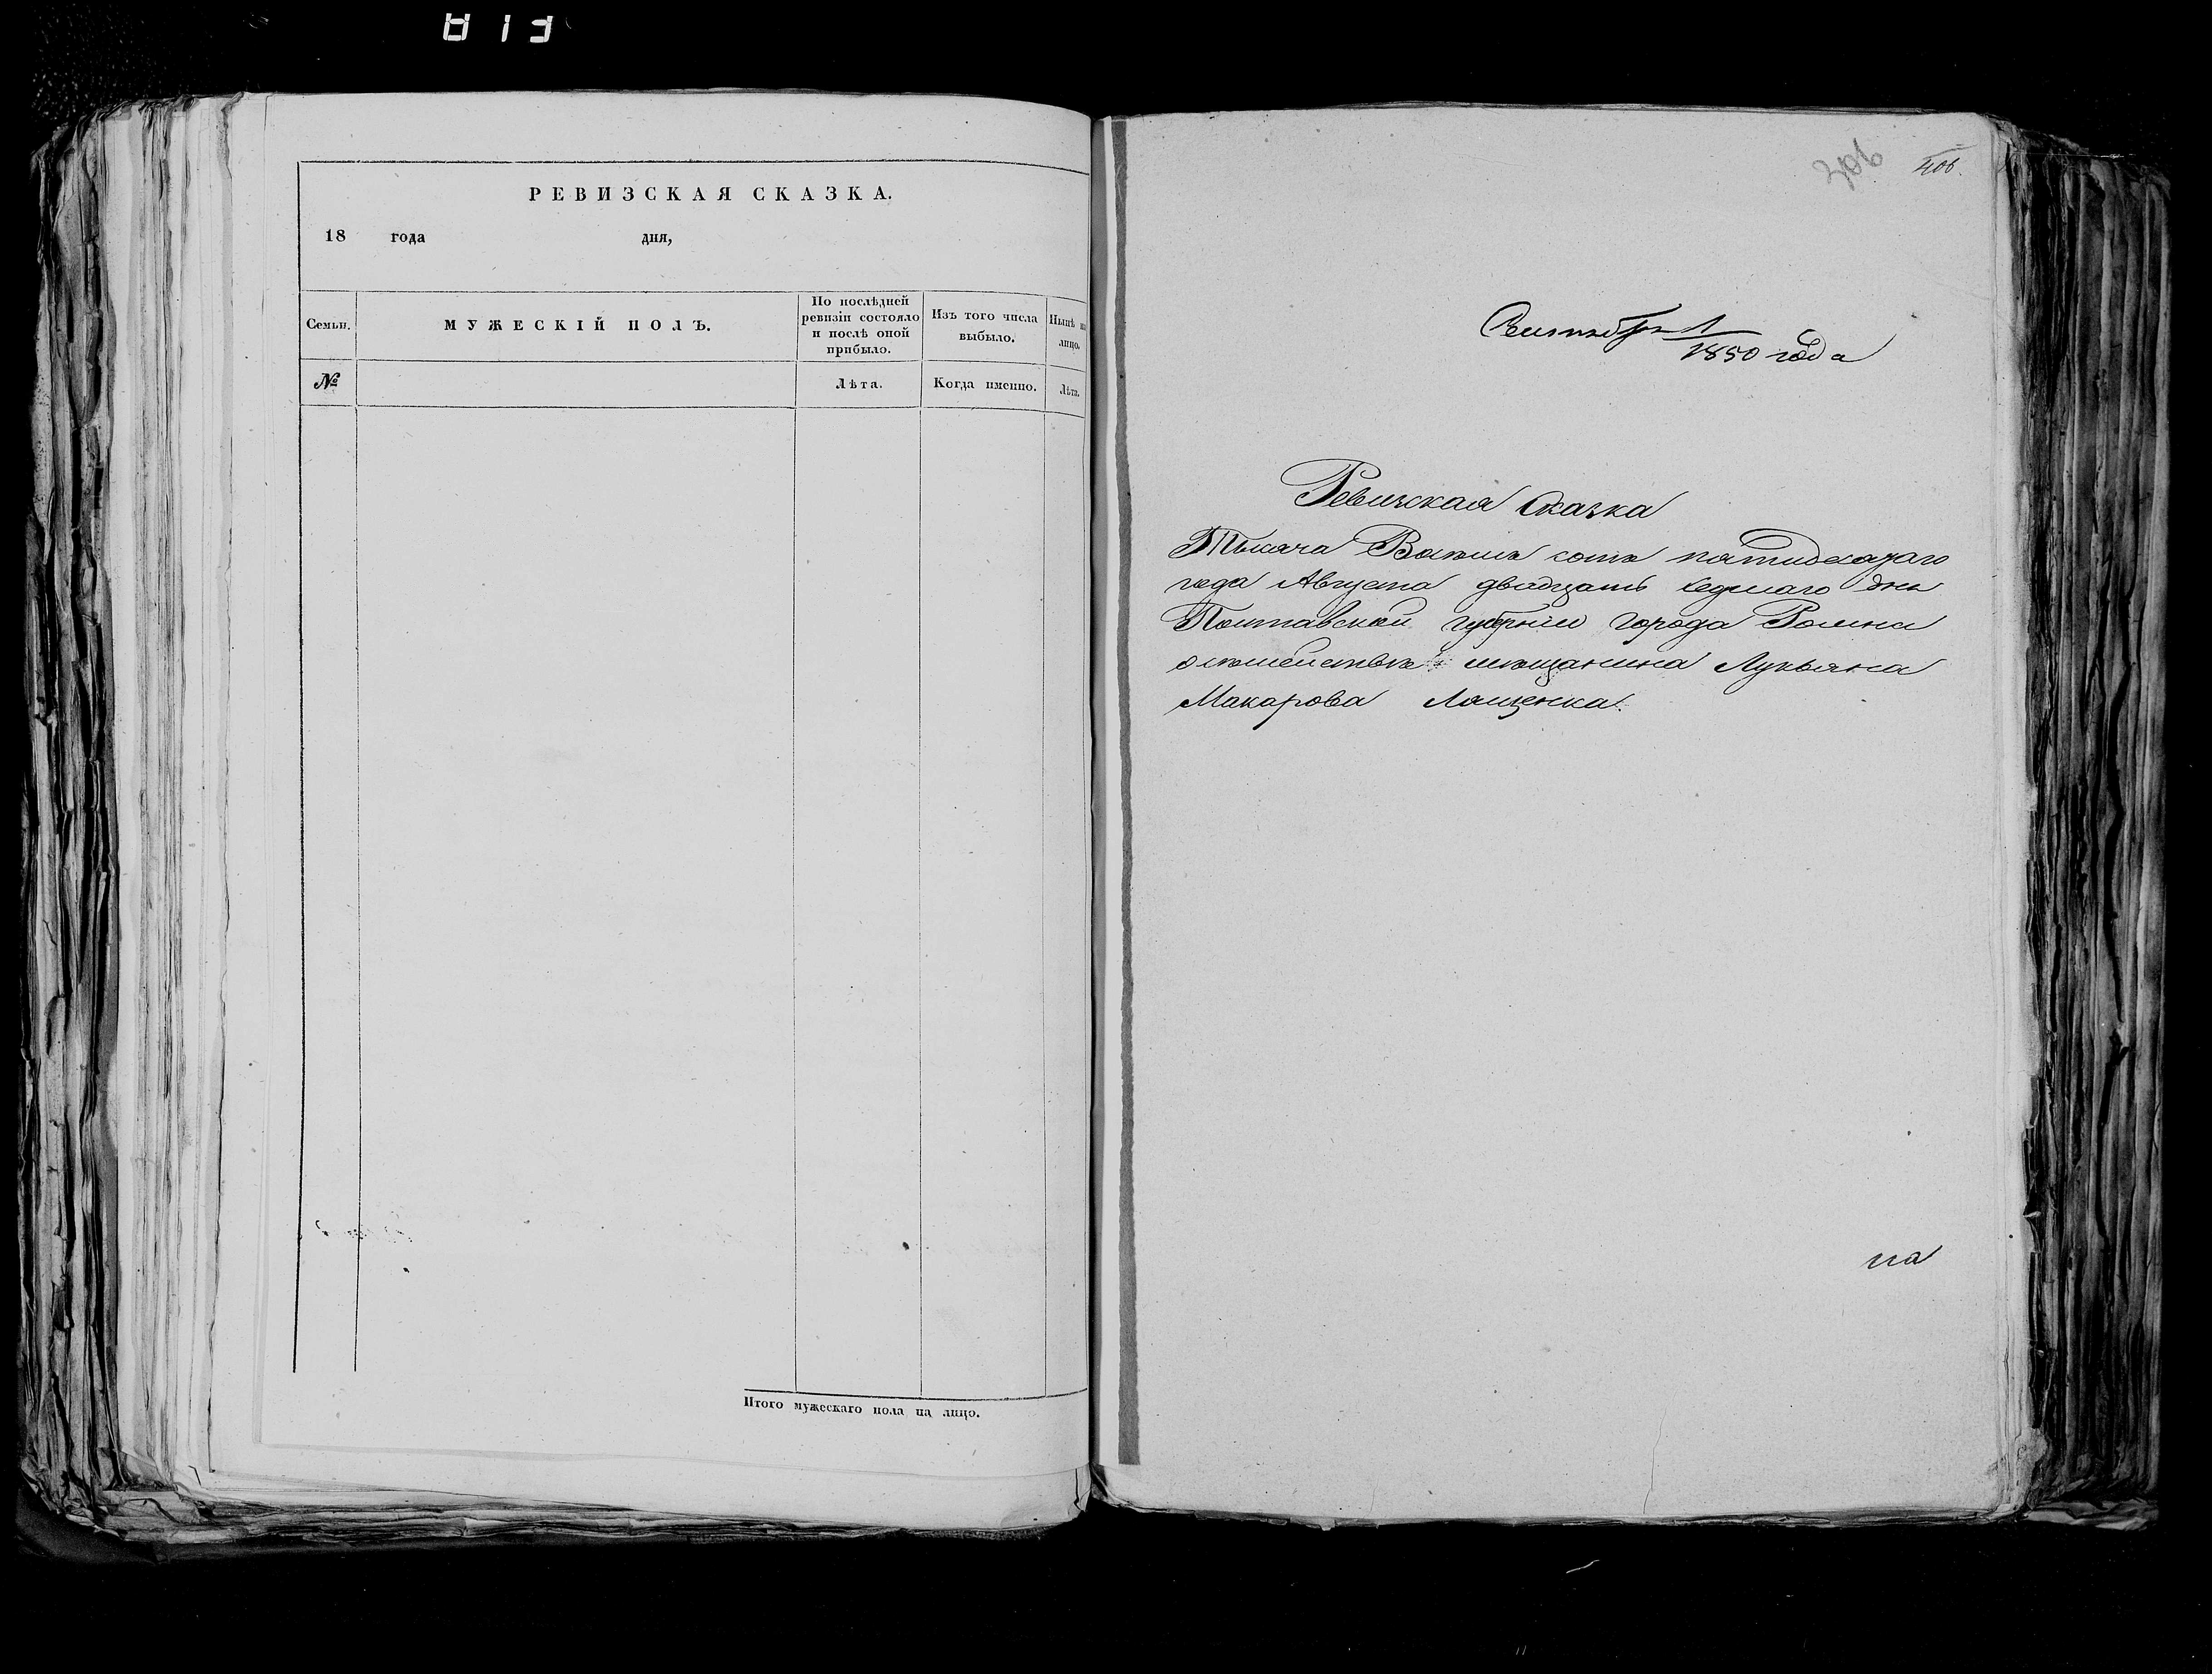 813
РЕВИЗСКАЯ СКАЗКА.
18 года дня,
Семьи.
МУЖЕСКІЙ ПОЛЪ.
По послѣдней ревизіи состояло и послѣ оной прибыло.
Изъ того числа выбыло.
Нынѣ на лицо.
№
Лѣта.
Когда именно.
Лѣта.
Итого мужескаго пола на лицо.
306
406.
Сентября 1
1850 года
Ревизская Сказка
Тысяча Восемь сотъ пятидесятаго
года Августа двадцать седмаго дня
Полтавской губерніи города Ромна
о семействѣ мещанина Лукьяна
Макарова Лященка.
на